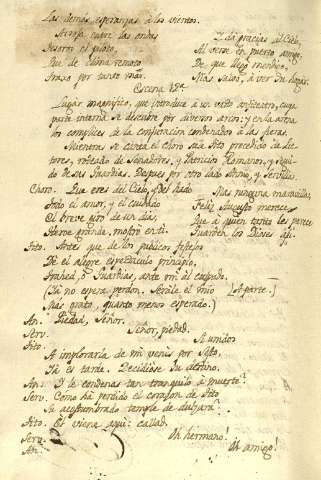 Las demás esperanzas à los vientos.
Arroja entre las ondas
Tesoros el piloto,
Que de clima remoto
Traxo por tanto mar.
Y da gracias al Cielo,
Al verse en puerto amigo,
De que llegó mendigo,
Mas salvo, à ver su hogar.
Escena 12ª
Lugar magnifico, que introduce à un vasto anfiteatro, cuya
parte interna se descubre por diversos arcos: y en la arena
los complices de la conjuracion condenados à las fieras.
Mientras se canta el Choro sale Tito precedido de Lic-
tores, rodeado de Senadores, y Patricios Romanos, y segui-
do de sus Guardias. Despues por otro lado Annio, y Servilia.
Choro. Que eres del Cielo, y del hado
Todo el amor, y el cuidado
El breve giro de un dia,
Heroe grande, mostró en ti.
Mas ninguna maravilla,
Feliz Augusto merece
Que à quien tanto les parece
Guarden los Dioses asi.
Tito. Antes que de los publicos festejos
De el alegre espectaculo principio,
Trahed, ò Guardias, ante mi el culpado.
(Ya no espera perdon. Serále el mio [Aparte.]
Mas grato, quanto menos esperado.)
An. Piedad, Señor.
Serv. Señor, piedad.
Tito. Si unidos
A implorarla de mi venis por Sexto,
Ya es tarde. Decidióse su destino.
An. Y le condenas tan tranquilo à muerte?
Serv. Como ha perdido el corazon de Tito
Su acostumbrado temple de dulzura?
Tito. El viene aqui: callad.
Serv. Oh hermano!
An. Oh amigo!